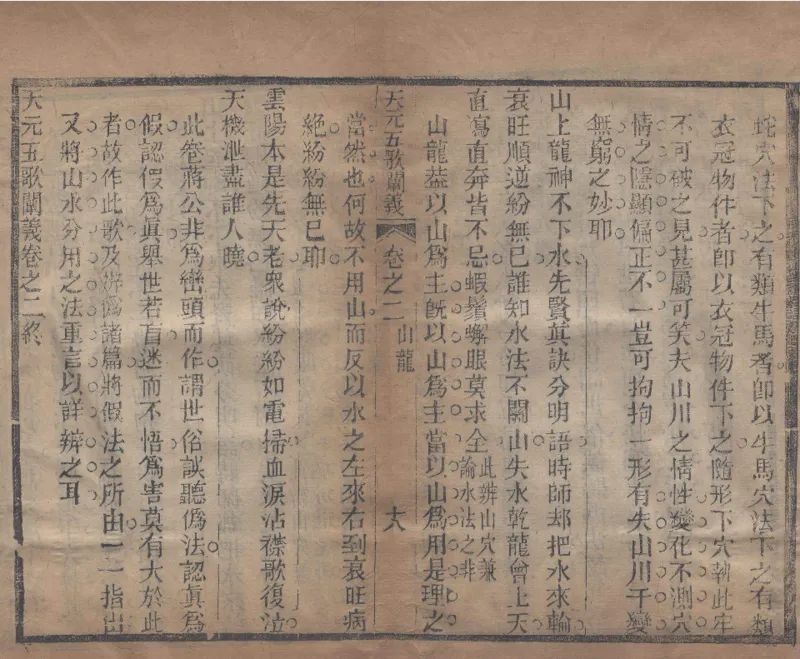 蛇穴法下之有類牛馬者卽以牛馬穴法下之有類
衣冠物件者卽以衣冠物件下之隨形下穴執此牢
不可破之見甚屬可笑夫山川之情性變化不測穴
情之隱顯偏正不一豈可拘拘一形有失山川千變
無窮之妙耶
山上龍神不下水先賢眞訣分明語時師却把水來輪
衰旺順逆紛無已誰知水法不關山失水乾龍曾上天
直瀉直奔皆不忌蝦鬚蠏眼莫求全此辨山穴兼論水法之非
山龍葢以山爲主旣以山爲主當以山爲用是理之
天元五歌闡義 卷之二 山龍 大
當然也何故不用山而反以水之左來右到衰旺病
絕紛紛無已耶
雲陽本是先天老衆說紛紛如電掃血淚沾襟歌復泣
天機泄盡誰人曉
此卷蔣公非爲巒頭而作謂世俗誤聽僞法認眞爲
假認假爲眞舉世若盲迷而不悟爲害莫有大於此
者故作此歌及辨僞諸篇將假法之所由一一指出
又將山水分用之法重言以詳辨之耳
天元五歌闡義卷之二終